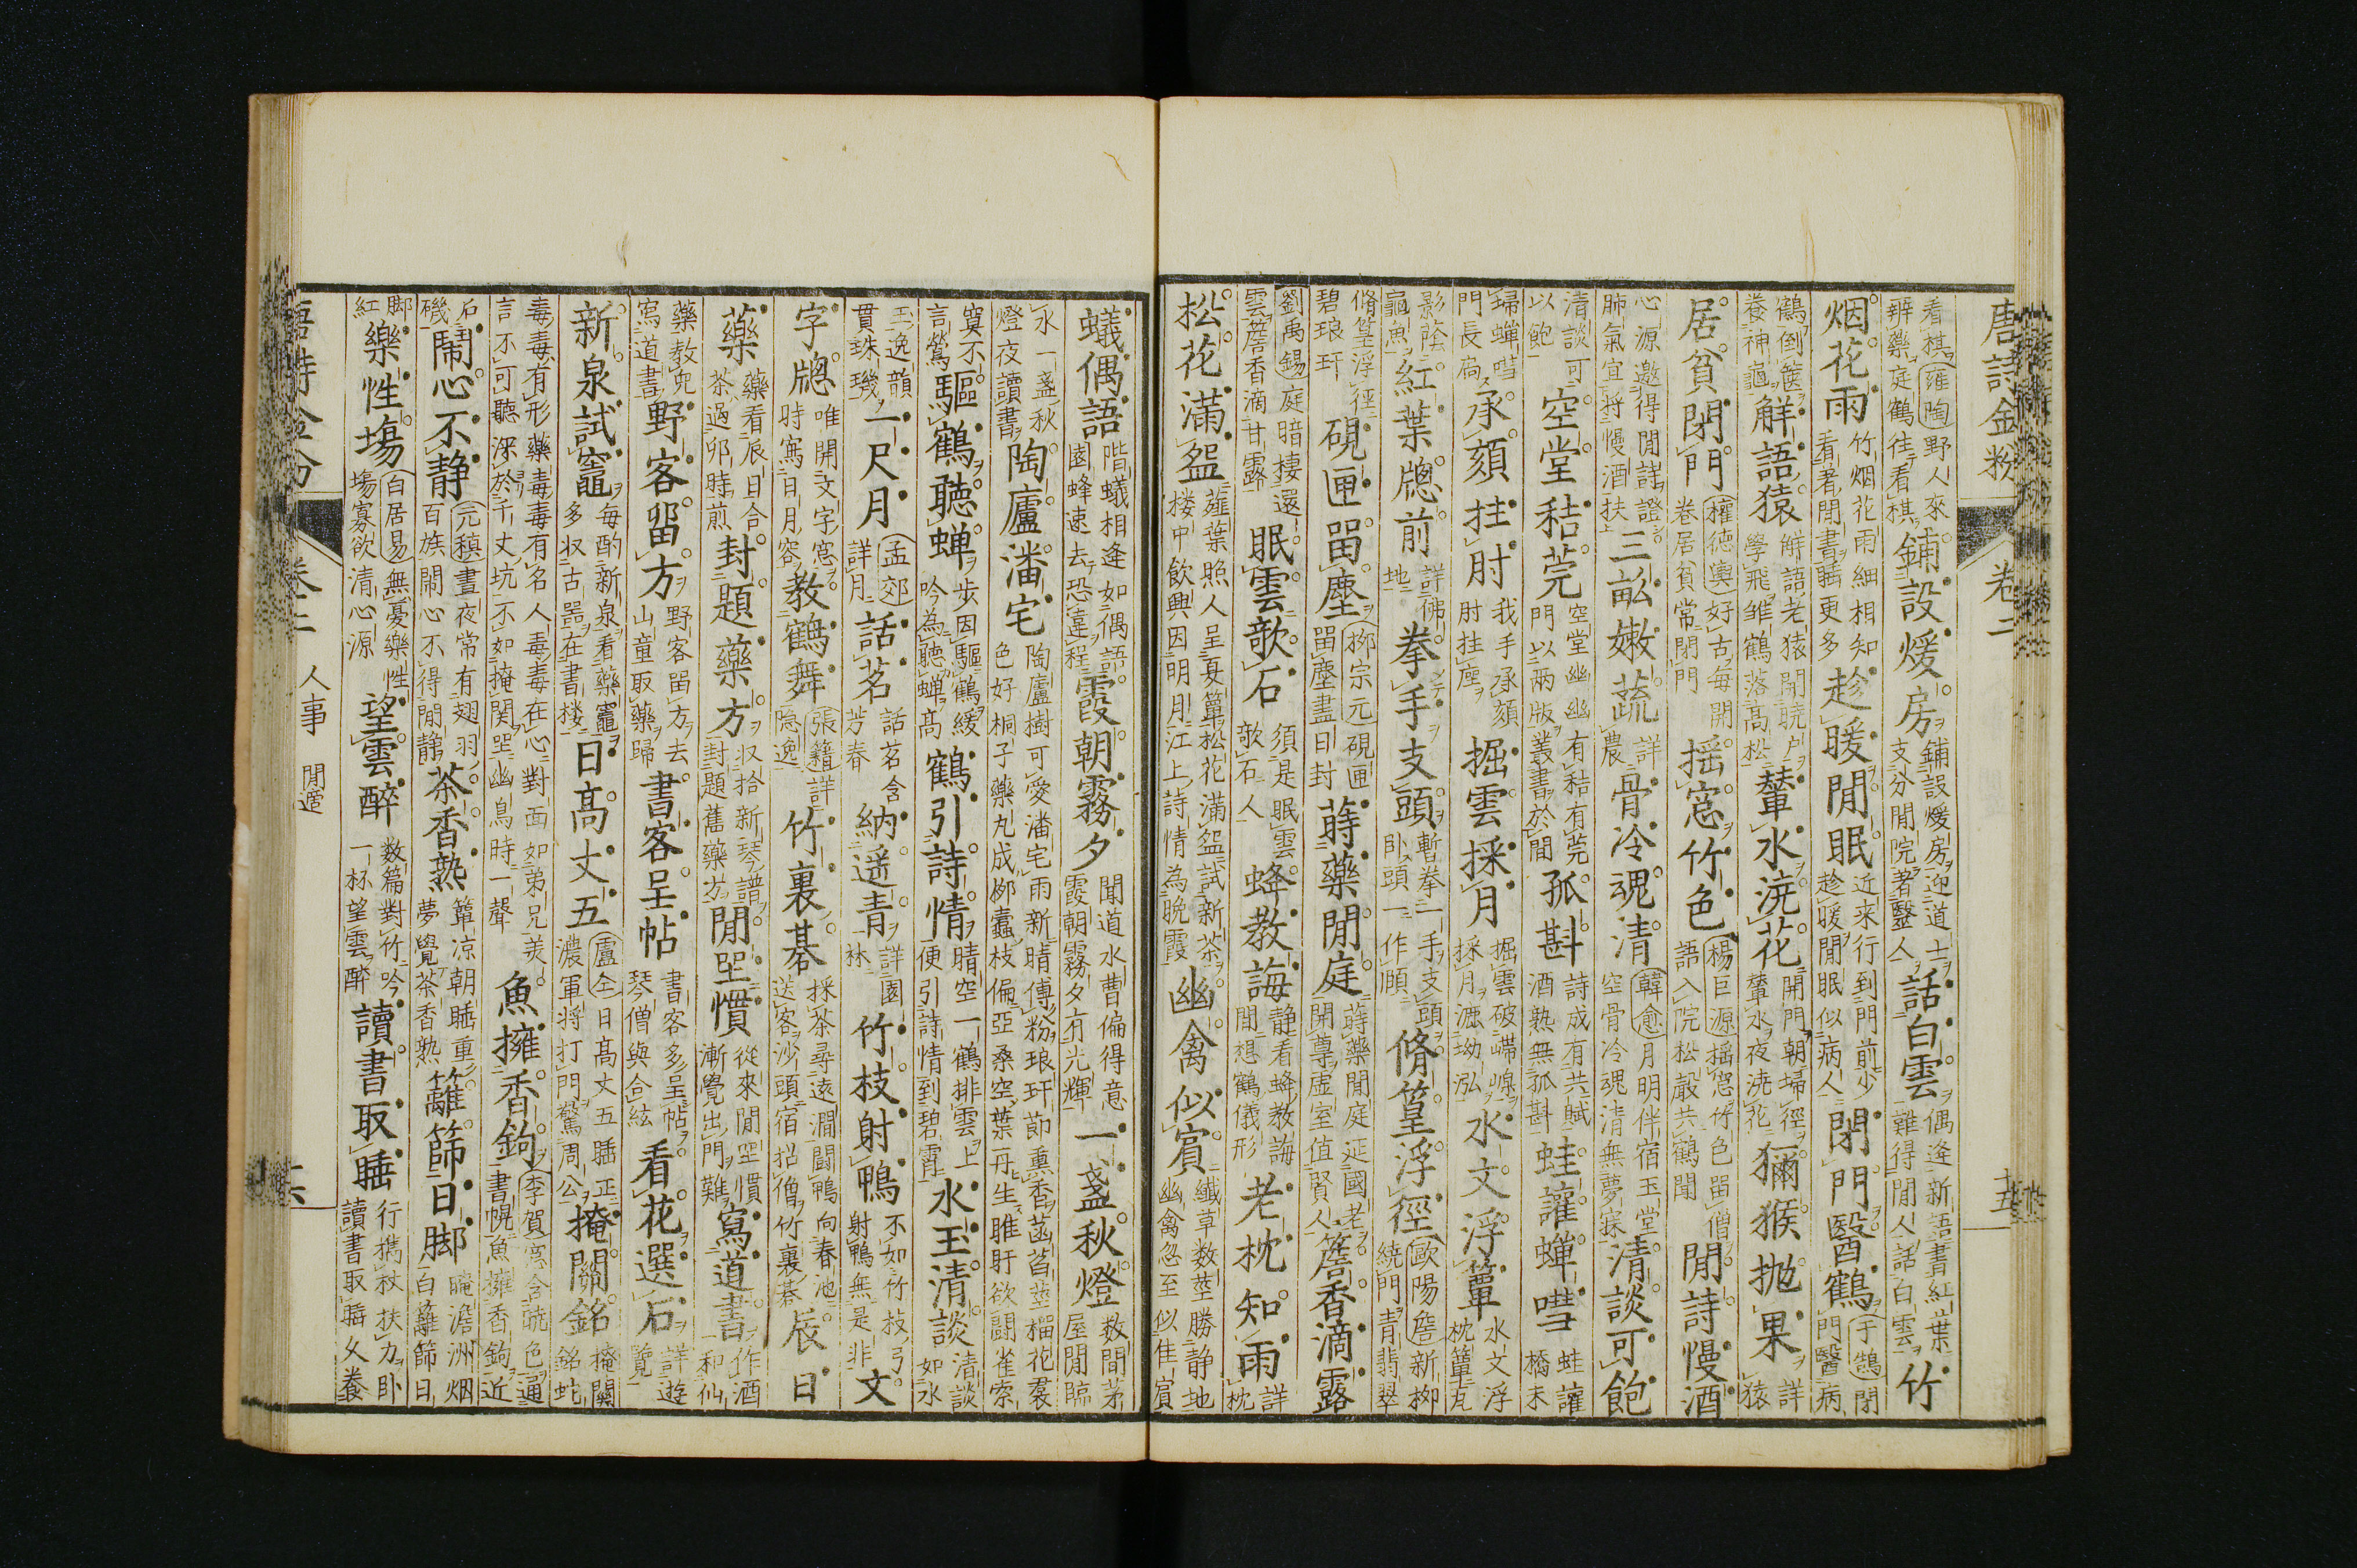 唐詩金粉 卷二 十五
看棋羅陶野人來辨藥庭鶴往看棋鋪設煖房鋪設煖房迎道士支分閒院著醫人話白雲偶逢新語書紅葉難得閒人話白雲竹
烟花雨竹烟花雨細相知看著閒書睡更多趁暖閒眠近来行到門前少趁暖閒眠似病人閉門醫鶴于鵠閉門醫病
鶴倒篋養神龜解語猿觧語老猿開曉户學飛雏鶴落高松輦水澆花開門朝埽徑輦水夜澆花獼猴抛果詳猿
居貧閉門權德輿好古每開卷居貧常閉門揺窓竹色楊巨源揺窓竹色留僧語入院松聲共鶴聞閒詩慢酒
心源邀得閒詩證肺氣宜將慢酒扶三畝嫩蔬詳農骨冷魂清韓愈月明伴宿玉堂空骨冷魂清無夢寐清談可飽
清談可以飽空堂秸莞空堂幽幽有秸有莞門以兩版叢書於間孤斟詩成有共賦酒熟無孤斟蛙讙蟬嘒蛙讙橋未
埽蟬嘒門長扃承頦拄肘我手承頦肘拄座掘雲採月掘雲破嵽嵲採月漉坳泓水文浮簟水文浮枕簟瓦
影蔭龜魚紅葉牕前詳佛地拳手支頭暫拳一手支頭卧頭一作頤脩篁浮徑歐陽詹新柳繞門青翡翠
脩篁浮徑碧琅玕硯匣留塵柳宗元硯匣留塵盡日封蒔藥閒庭蒔藥閒庭延國老開尊虚室值賢人簷香滴露
劉禹錫庭暗棲還雲簷香滴甘露眠雲歌石須是眠雲歌石人蜂教誨静看蜂教誨閒想鶴儀形老枕知雨詳枕
松花滿盌薤葉照人呈夏簟松花滿盌試新茶楼中飲興因明月江上詩情為晩霞幽禽似賓纖草数莖勝静地幽禽忽至似佳賓
蟻偶語階蟻相逢如偶語園蜂速去恐違程霞朝霧夕聞道水曹偏得意霞朝霧夕有光輝一盞秋燈数間茅屋閒臨
水一盞秋燈夜讀書陶廬潘宅陶廬樹可愛潘宅雨新晴傅粉琅玕節熏香菡萏莖榴花裙色好桐子藥丸成栁蠹枝偏亞桑空葉再生睢盱欲鬭雀索
寞不言鶯驅鶴聽蟬步因驅鶴緩吟為聽蟬高鶴引詩情晴空一鶴排雲上便引詩情到碧霄水玉清談清談如水
玉逸韻貫珠璣一尺月孟郊詳月話茗話茗含芳春納遥青詳園林竹枝射鴨不如竹枝弓射鴨無是非文
字牕唯開文字窓時寫日月容教鶴舞張籍詳隠逸竹裏棊採茶尋遠澗鬭鴨向春池送客沙頭宿招僧竹裏棊辰日
藥藥看辰日合茶過卯時煎封題藥方収拾新琴譜封題舊藥方閒坐慣從來閒坐慣漸覺出門難寫道書作酒和仙
藥教兒寫道書野客留方野客留方去山童取藥歸書客呈帖書客多呈帖琴僧與合絃看花選石詳遊覽
新泉試竈每酌新泉看藥竈多収古噐在書楼日高丈五盧仝日高丈五睡正濃軍將打門驚周公掩關銘掩關銘蛇
毒毒有形藥毒毒有名人毒毒在心對面如弟兄美言不可聽深於千丈坑不如掩関坐幽鳥時一聲魚擁香鉤李賀窓含曉色通書幌魚擁香鉤近
石磯閙心不静元稹晝夜常有翅羽百族閙心不得閒静茶香熟簟凉朝睡重夢覺茶香熟籬篩日脚晻澹洲烟白籬篩日
脚紅樂性塲白居易無憂樂性塲寡欲清心源望雲醉数篇對竹吟一杯望雲醉讀書取睡行攜杖扶力卧讀書取睡又養
唐詩金粉 卷二 人事 閒適 十六